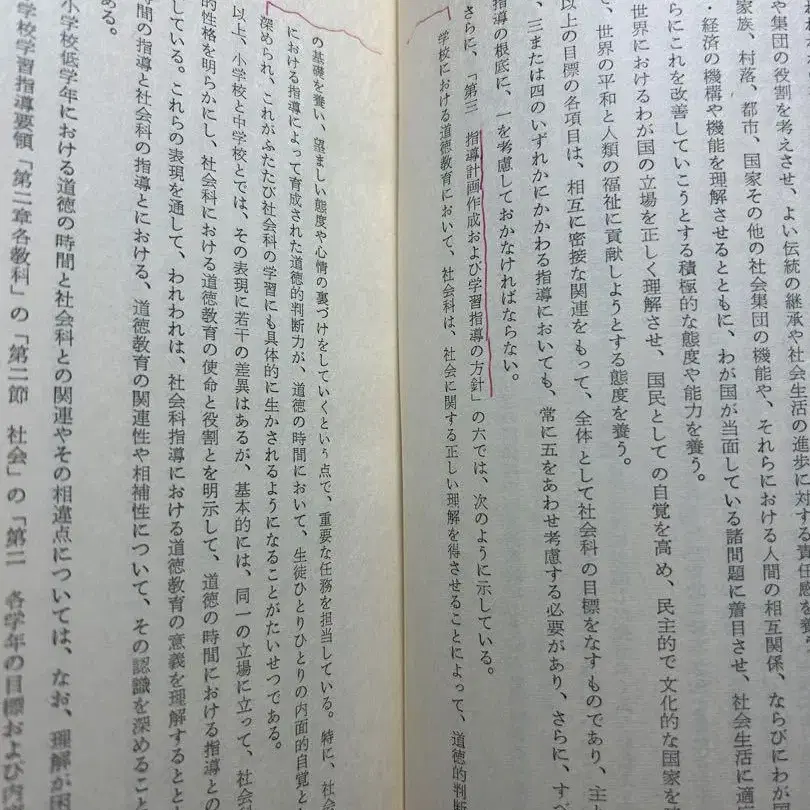 や集団の役割を考えさせ、よい伝統の継承や社会生活の進歩に対する責任感を養
家族、村落、都市、国家その他の社会集団の機能や、それらにおける人間の相互関係、ならびにわが国
・経済の機構や機能を理解させるとともに、わが国が当面している諸問題に着目させ、社会生活に適
らにこれを改善していこうとする積極的な態度や能力を養う。
世界におけるわが国の立場を正しく理解させ、国民としての自覚を高め、民主的で文化的な国家を
、世界の平和と人類の福祉に貢献しようとする態度を養う。
以上の目標の各項目は、相互に密接な関連をもって、全体として社会科の目標をなすものであり、主
、三または四のいずれかにかかわる指導においても、常に五をあわせ考慮する必要があり、さらに、すべ
指導の根底に、一を考慮しておかなければならない。
さらに、「第三 指導計画作成および学習指導の方針」の六では、次のように示している。
学校における道徳教育において、社会科は、社会に関する正しい理解を得させることによって、道徳的判断
の基礎を養い、望ましい態度や心情の裏づけをしていくという点で、重要な任務を担当している。特に、社会
における指導によって育成された道徳的判断力が、道徳の時間において、生徒ひとりひとりの内面的自覚と
深められ、これがふたたび社会科の学習にも具体的に生かされるようになることがたいせつである。
以上、小学校と中学校とでは、その表現に若干の差異はあるが、基本的には、同一の立場に立って、社会科
的性格を明らかにし、社会科における道徳教育の使命と役割とを明示して、道徳の時間における指導との
している。これらの表現を通して、われわれは、社会科指導における道徳教育の意義を理解するとと
時間の指導と社会科の指導とにおける、道徳教育の関連性や相補性について、その認識を深めること
ある。
小学校低学年における道徳の時間と社会科との関連やその相違点については、なお、理解が困
学校学習指導要領「第二章各教科」の「第二節 社会」の「第二 各学年の目標および内容